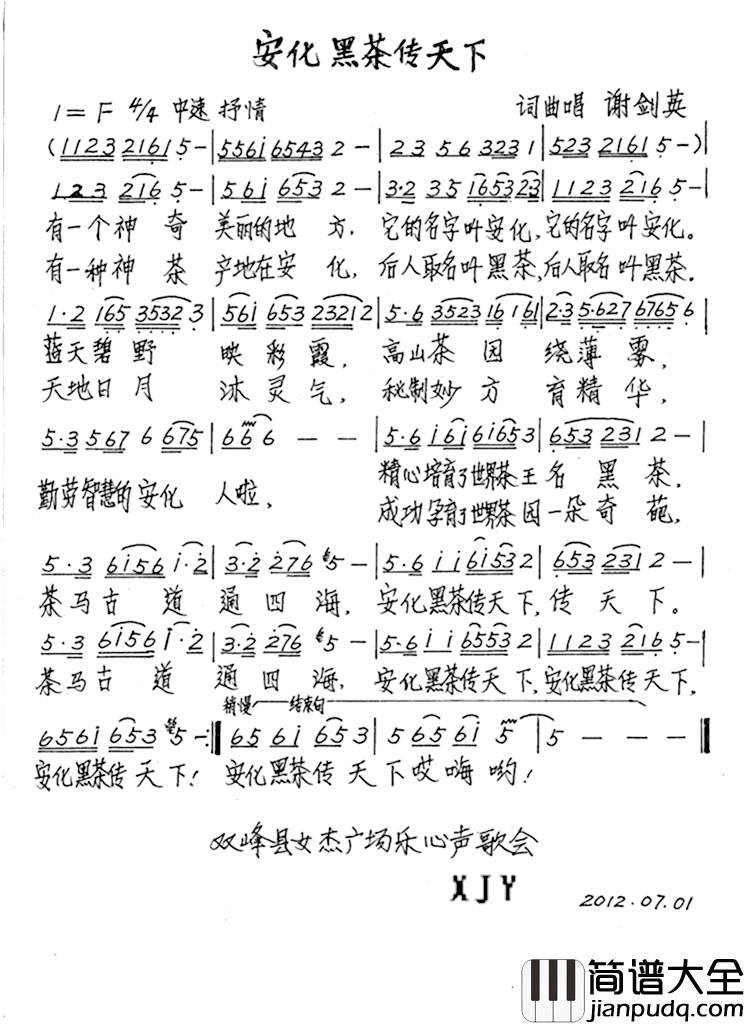 安化黑茶传天下
1=F 4/4 中速 抒情 词曲唱 谢剑英
(1123 2161 5-|5561 6543 2-|23 56 323 1|523 2161 5-)|
123 216 5-|561 653 2-|3·2 35 165323|1123 216 5-|
有一个神奇 美丽的地方，它的名字叫安化，它的名字叫安化。
有一种神茶 产地在安化，后人取名叫黑茶，后人取名叫黑茶．
1·2 165 3532 3|561 653 23212|5·6 3523 16 161|2·3 5·627 6765 6|
蓝天碧野 映彩霞，高山茶园 绕薄雾，
天地日月 沐灵气，秘制妙方 育精华，
5·3 567 6 675|66 6 - -|5·6 161 61653|653 231 2-|
勤劳智慧的安化 人啦，精心培育了世界茶王名黑茶，
成功孕育了世界茶园一朵奇葩，
5·3 6156 1·2|3·2 276 5-|5·6 11 6153 2|653 231 2-|
茶马古道 通四海，安化黑茶传天下，传天下。
5·3 6156 1·2|3·2 276 5-|5·6 11 6553 2|1123 216 5-|
茶马古道 通四海，安化黑茶传天下，安化黑茶传天下，
稍慢 结束句
6561 653 5-:|65 61 653 3|5 65 61 5|5---|
安化黑茶传天下！安化黑茶传天下哎嗨哟！
双峰县女杰广场乐心声歌会
XJY 2012.07.01
简谱大全
jianpudq.com